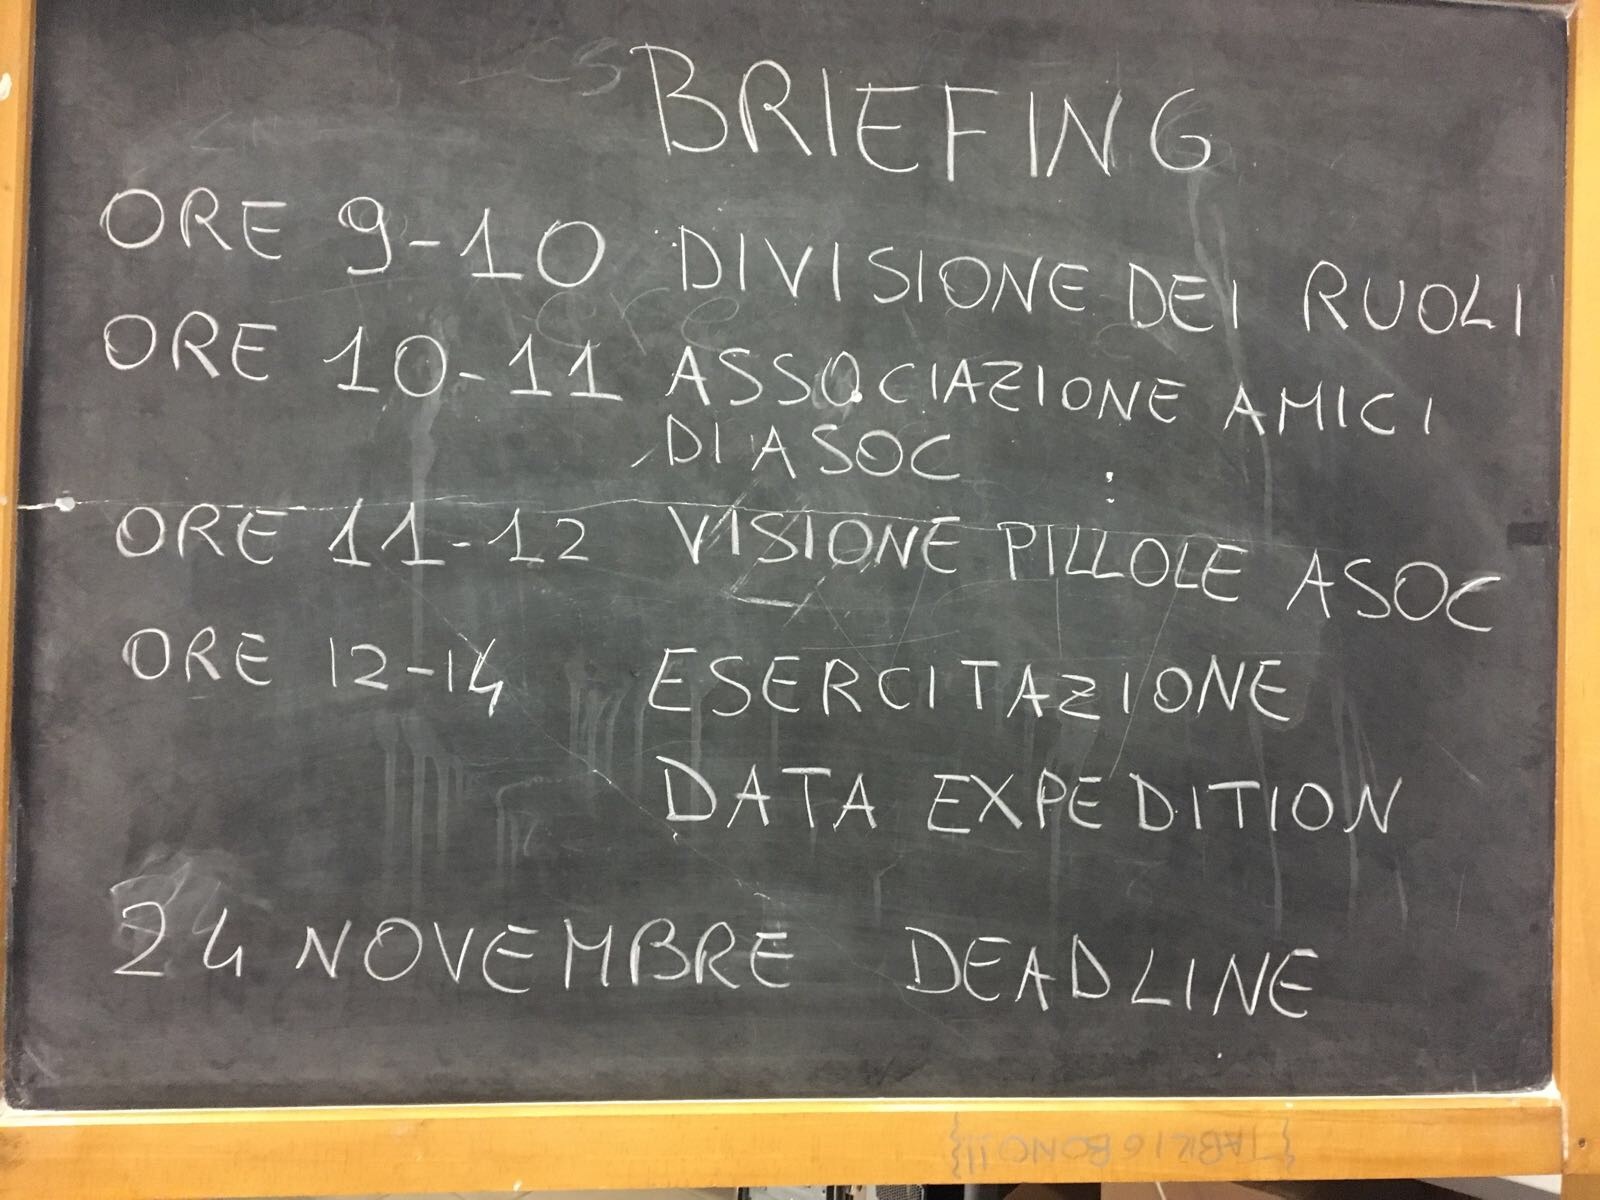 BRIEFING
ORE 9-10 DIVISIONE DEI RUOLI
ORE 10-11 ASSOCIAZIONE AMICI
DI ASOC
ORE 11-12 VISIONE PILLOLE ASOC
ORE 12-14 ESERCITAZIONE
DATA EXPEDITION
24 NOVEMBRE DEADLINE